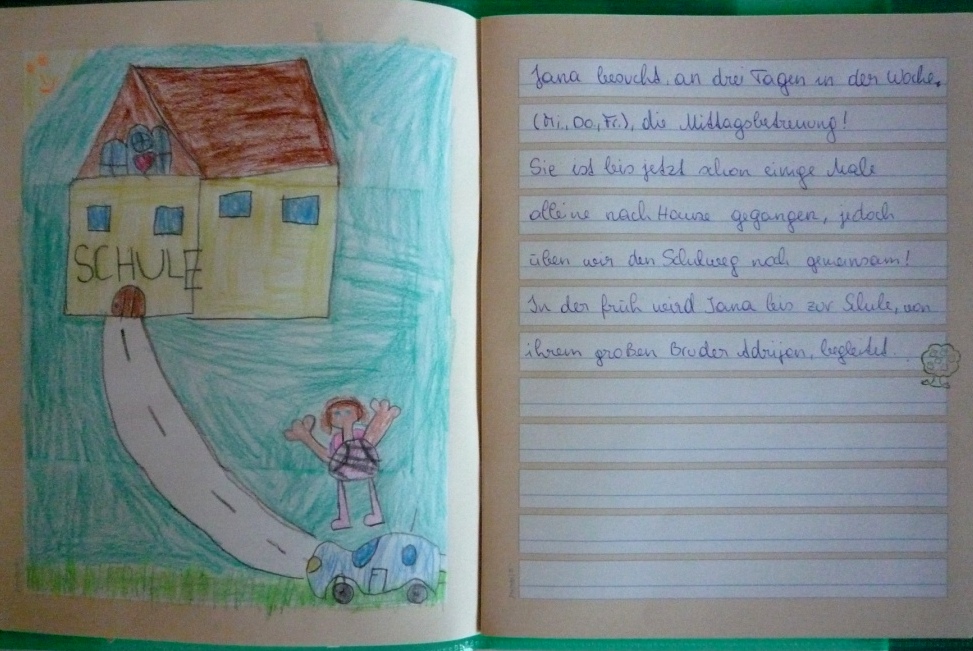 SCHULE
Jana besucht, an drei Tagen in der Woche,
(Mi., Do, Fr.), die Mittagsbetreuung!
Sie ist bis jetzt schon einige Male
alleine nach Hause gegangen, jedoch
üben wir den Schulweg noch gemeinsam!
In der früh wird Jana bis zur Shule, von
ihrem großen Bruder Adrijan, begleitet.